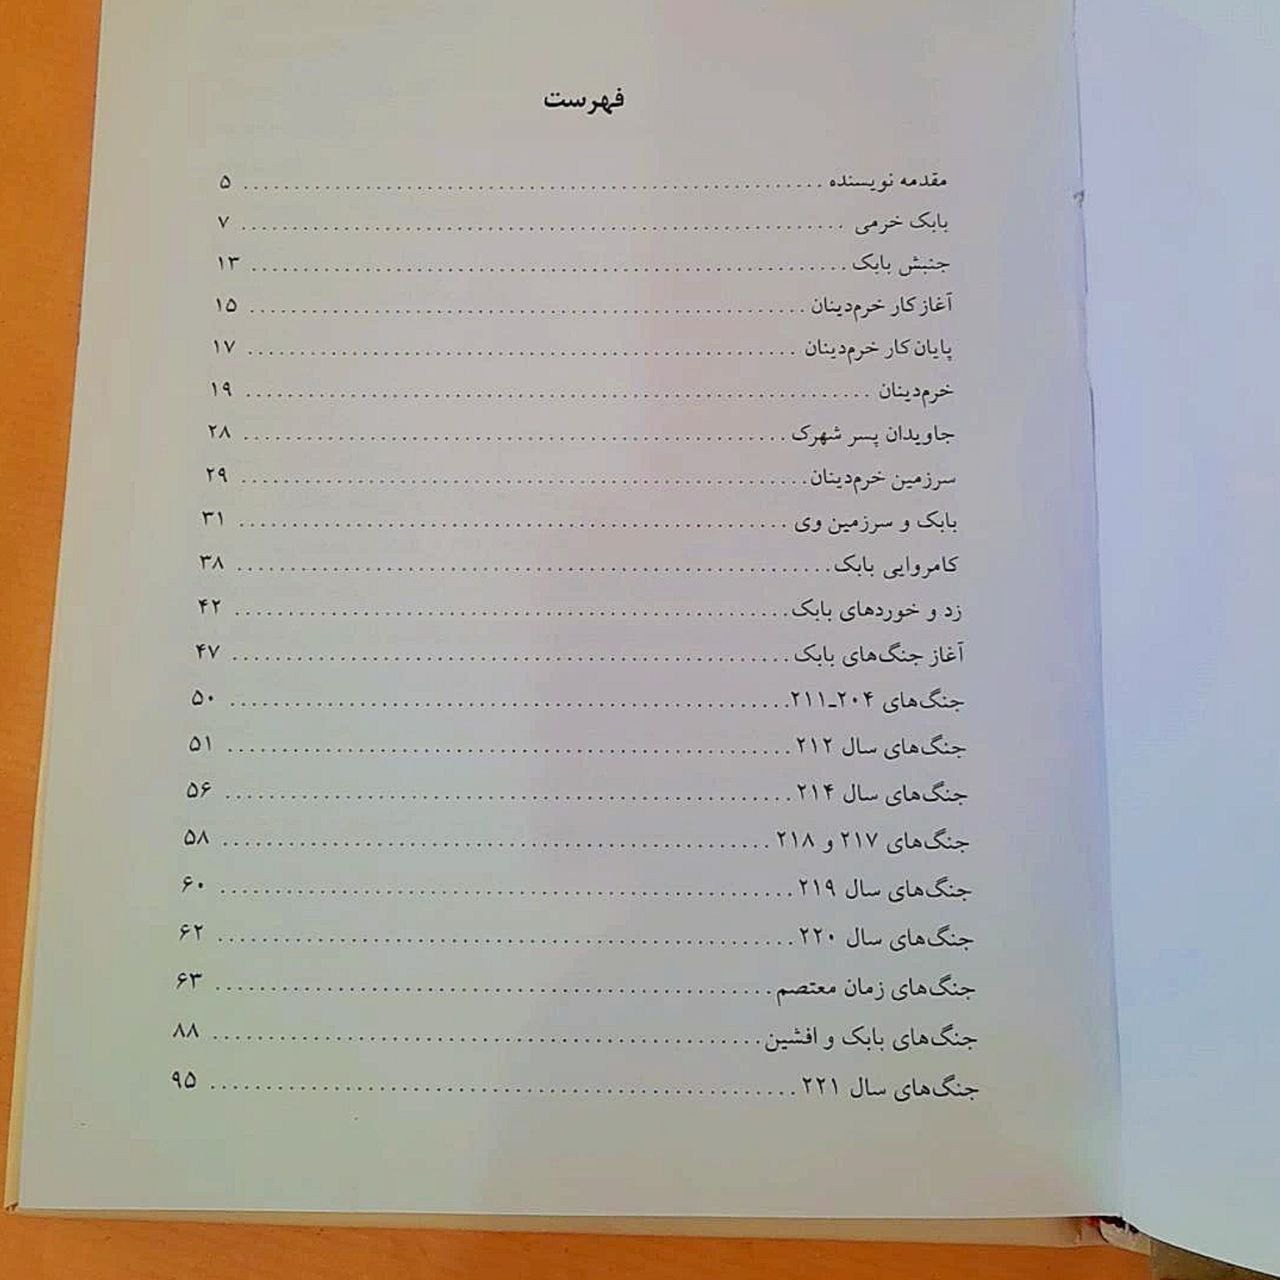 فهرست
مقدمه نویسنده ........ ۵
بابک خرمی ........ ۷
جنبش بابک ........ ۱۳
آغاز کار خرم‌دینان ........ ۱۵
پایان کار خرم‌دینان ........ ۱۷
خرم‌دینان ........ ۱۹
جاویدان پسر شهرک ........ ۲۸
سرزمین خرم‌دینان ........ ۲۹
بابک و سرزمین وی ........ ۳۱
کامروایی بابک ........ ۳۸
زد و خوردهای بابک ........ ۴۲
آغاز جنگ‌های بابک ........ ۴۷
جنگ‌های ۲۰۴ـ۲۱۱ ........ ۵۰
جنگ‌های سال ۲۱۲ ........ ۵۱
جنگ‌های سال ۲۱۴ ........ ۵۶
جنگ‌های ۲۱۷ و ۲۱۸ ........ ۵۸
جنگ‌های سال ۲۱۹ ........ ۶۰
جنگ‌های سال ۲۲۰ ........ ۶۲
جنگ‌های زمان معتصم ........ ۶۳
جنگ‌های بابک و افشین ........ ۸۸
جنگ‌های سال ۲۲۱ ........ ۹۵